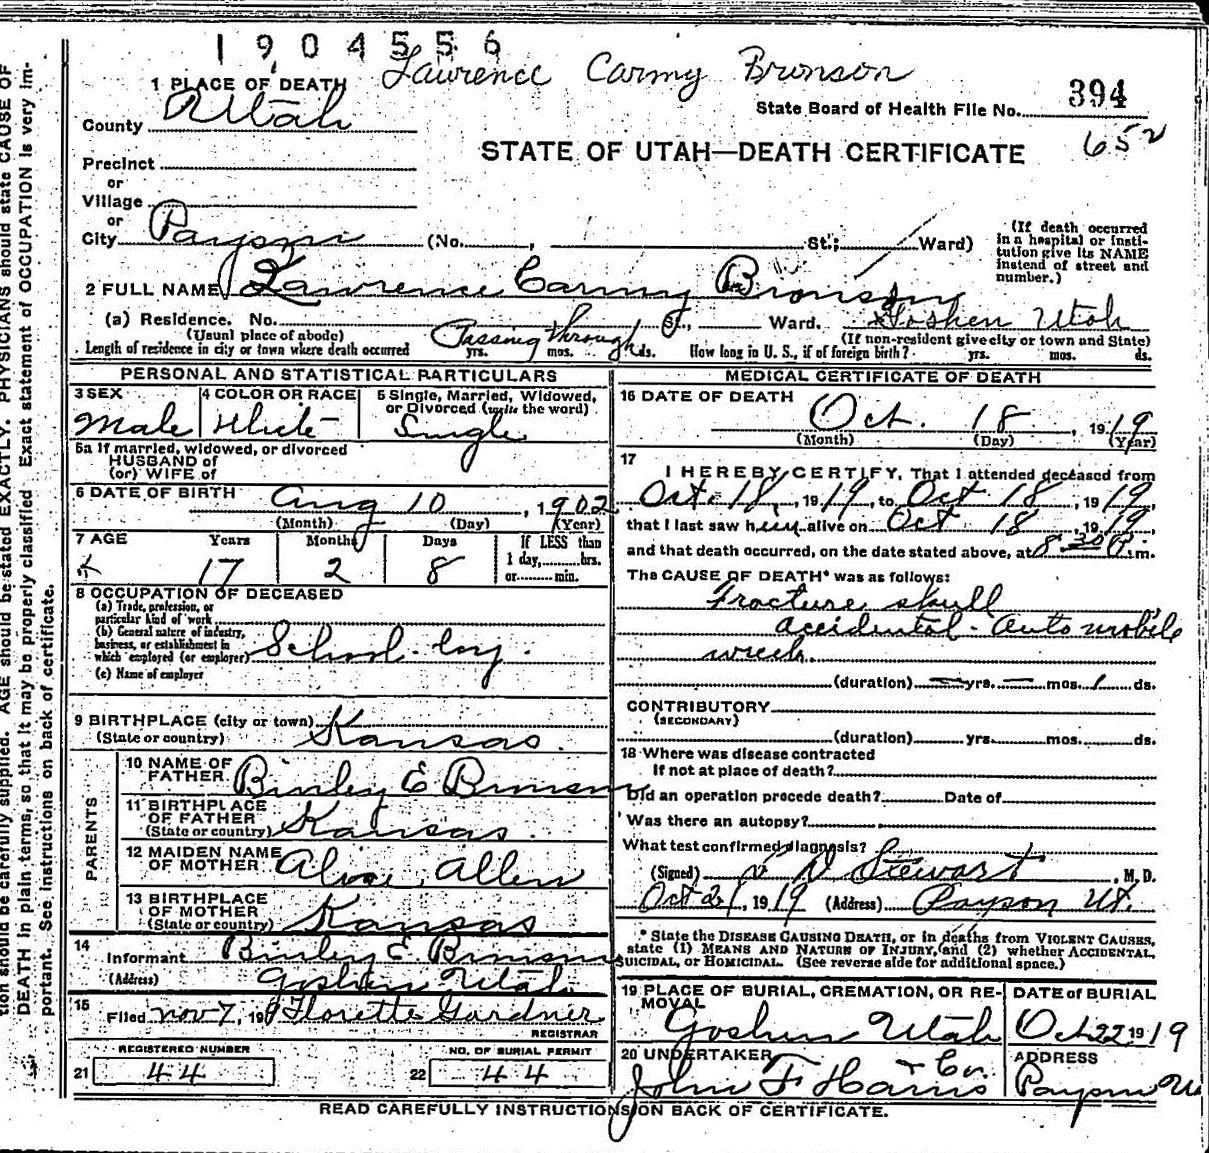 1904556
Lawrence Carmy Bronson
1 PLACE OF DEATH
State Board of Health File No. 394
County Utah
652
STATE OF UTAH—DEATH CERTIFICATE
Precinct
or
Village
or
City Payson (No. , St.; Ward)
(If death occurred in a hospital or institution give its NAME instead of street and number.)
2 FULL NAME Lawrence Carmy Bronson
(a) Residence. No. St., Ward. Goshen Utah
(Usual place of abode) (If non-resident give city or town and State)
Length of residence in city or town where death occurred Passing through yrs. mos. ds. How long in U. S., if of foreign birth? yrs. mos. ds.
PERSONAL AND STATISTICAL PARTICULARS
3 SEX Male
4 COLOR OR RACE White
5 Single, Married, Widowed, or Divorced (write the word) Single
5a If married, widowed, or divorced
HUSBAND of
(or) WIFE of
6 DATE OF BIRTH Aug 10, 1902
(Month) (Day) (Year)
7 AGE Years Months Days If LESS than
17 2 8 1 day, hrs.
or min.
8 OCCUPATION OF DECEASED
(a) Trade, profession, or particular kind of work
(b) General nature of industry, business, or establishment in which employed (or employer) School-boy.
(c) Name of employer
9 BIRTHPLACE (city or town)
(State or country) Kansas.
PARENTS
10 NAME OF FATHER Binley E Bronson
11 BIRTHPLACE OF FATHER (State or country) Kansas.
12 MAIDEN NAME OF MOTHER Alice Allen
13 BIRTHPLACE OF MOTHER (State or country) Kansas
14 Informant Binley E. Bronson
(Address) Goshen Utah
15 Filed Nov 7, 19 Florette Gardner
REGISTRAR
REGISTERED NUMBER NO. OF BURIAL PERMIT
21 44 22 44
MEDICAL CERTIFICATE OF DEATH
16 DATE OF DEATH
Oct. 18, 1919
(Month) (Day) (Year)
17
I HEREBY CERTIFY, That I attended deceased from
Oct. 18, 1919, to Oct 18, 1919,
that I last saw him alive on Oct 18, 1919
and that death occurred, on the date stated above, at 8 30 P. m.
The CAUSE OF DEATH* was as follows:
Fracture skull
accidental - Automobile
wreck.
(duration) — yrs. — mos. 1 ds.
CONTRIBUTORY
(SECONDARY)
(duration) yrs. mos. ds.
18 Where was disease contracted
If not at place of death?
Did an operation precede death? Date of
Was there an autopsy?
What test confirmed diagnosis?
(Signed) Stewart, M. D.
Oct 21, 1919 (Address) Payson Ut.
* State the DISEASE CAUSING DEATH, or in deaths from VIOLENT CAUSES,
state (1) MEANS AND NATURE OF INJURY, and (2) whether ACCIDENTAL,
SUICIDAL, or HOMICIDAL. (See reverse side for additional space.)
19 PLACE OF BURIAL, CREMATION, OR REMOVAL Goshen Utah
DATE of BURIAL Oct 22 1919
20 UNDERTAKER John F Harris & Co.
ADDRESS Payson Ut
READ CAREFULLY INSTRUCTIONS ON BACK OF CERTIFICATE.
tion should be carefully supplied. AGE should be stated EXACTLY. PHYSICIANS should state CAUSE OF
DEATH in plain terms, so that it may be properly classified. Exact statement of OCCUPATION is very im-
portant. See instructions on back of certificate.